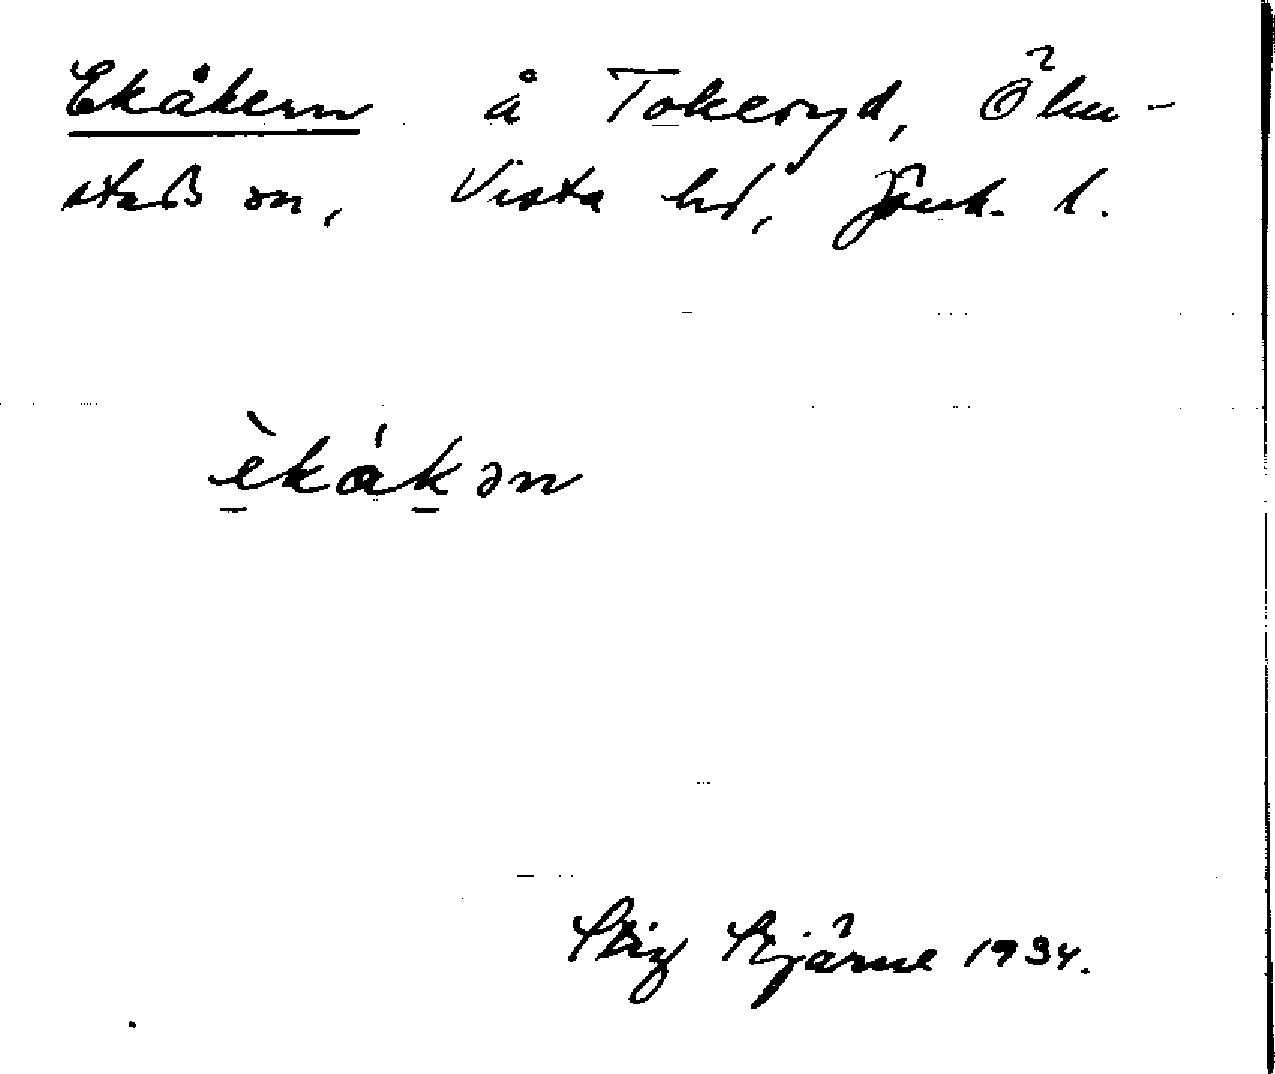 Ekåkern å Tokeryd, Ölm-
stads sn, Vista hd, Jönk. l.
èkákən
Stig Stjärne 1934.